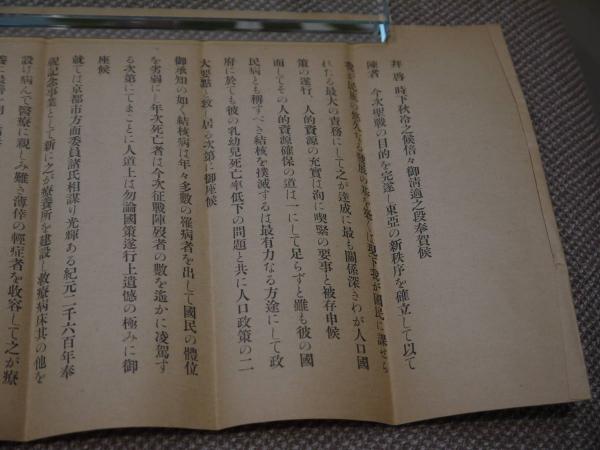 拜啓 時下秋冷之候倍々御淸適之段奉賀候
陳者 今次聖戰の目的を完遂し東亞の新秩序を確立して以て
我が民族の悠久なる發展の基を築くは現下我が國民に課せら
れたる最大の責務にして之が達成に最も關係深きわが人口國
策の遂行、人的資源の充實は洵に喫緊の要事と被存申候
而してその人的資源確保の道は一にして足らずと雖も彼の國
民病とも稱すべき結核を撲滅するは最有力なる方途にして政
府に於ても彼の乳幼兒死亡率低下の問題と共に人口政策の二
大要點と致し居る次第に御座候
御承知の如く結核病は年々多數の罹病者を出して國民の體位
を劣弱にし年次死亡者は今次征戰陣歿者の數を遙かに凌駕す
る次第にてまことに人道上は勿論國策遂行上遺憾の極みに御
座候
就ては京都市方面委員諸氏相謀り光輝ある紀元二千六百年奉
祝記念事業として新に之が療養所を建設し救療病床其の他を
設け病んで醫療に親しみ難き薄倖の輕症者を收容して之が療